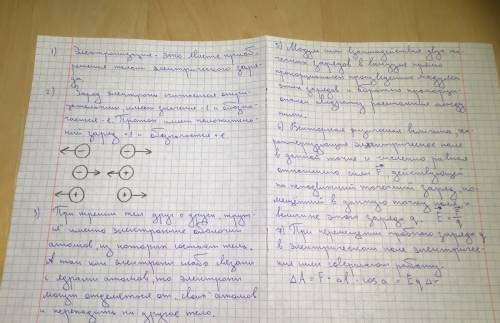 1) Электризация - это явление приоб-
ретения телом электрического заря-
да.
2) Заряд электрона считается отри-
цательным имеет значение -е и обозна-
чается - е. Протон имеет положитель-
ный заряд +е и обозначается + е.
3) При трении тел друг о друга, трут-
ся именно электронные оболочки
атомов, из которых состоят тела.
А так как электроны слабо связаны
с ядрами атомов, то электроны
могут отделяться от своих атомов
и переходить на другое тело.
5) Модуль сил взаимодействия двух то-
чечных зарядов в вакууме прямо
пропорционален произведению модулей
этих зарядов и обратно пропорцио-
нален квадрату расстояния между
ними.
6) Векторная физическая величина, ха-
рактеризующая электрическое поле
в данной точке и численно равная
отношению силы F, действующей
на неподвижный точечный заряд, по-
мещенный в данную точку поля, к
величине этого заряда q.
7) При перемещении пробного заряда q
в электрическом поле электричес-
кие силы совершают работу.
ΔA = F · Δl · cos α = Eq Δ